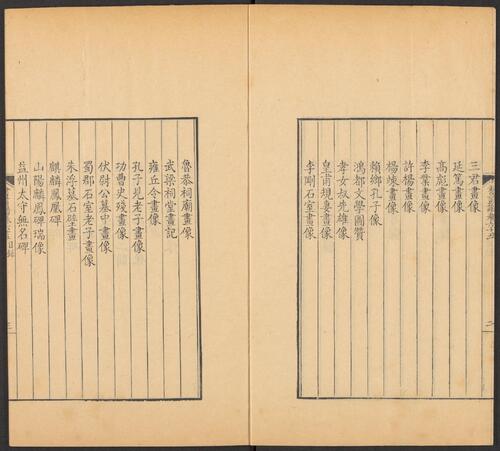 三君畫像
延篤畫像
高彪畫像
李業畫像
許楊畫像
楊竦畫像
賴鄉孔子像
鴻都文學圖贊
孝女叔先雄像
皇甫規妻畫像
李剛石室畫像
二
魯恭祠廟畫像
武梁祠堂畫記
雍丘令畫像
孔子見老子畫像
功曹史殘畫像
伏尉公墓中畫像
蜀郡石室老子畫像
朱浮墓石壁畫
麒麟鳳凰碑
山陽麟鳳碑瑞像
益州太守無名碑
三